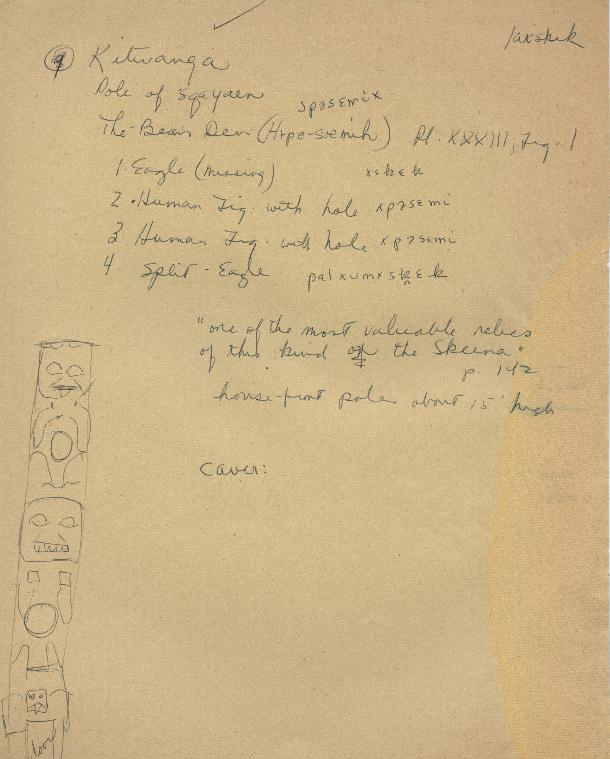 laxskik
9 Kitwanga
Pole of Sqayaen
spəsemix
The Bear's Den (Hrpe-soemih) Pl. XXXIII, Fig. 1
1. Eagle (missing) xskek
2. Human Fig. with hole xpəsemi
3. Human Fig. with hole xpəsemi
4. Split-Eagle palxumxskek
"one of the most valuable relics
of this kind on the Skeena"
p. 142
house-front pole about 15' high
Caver:
door